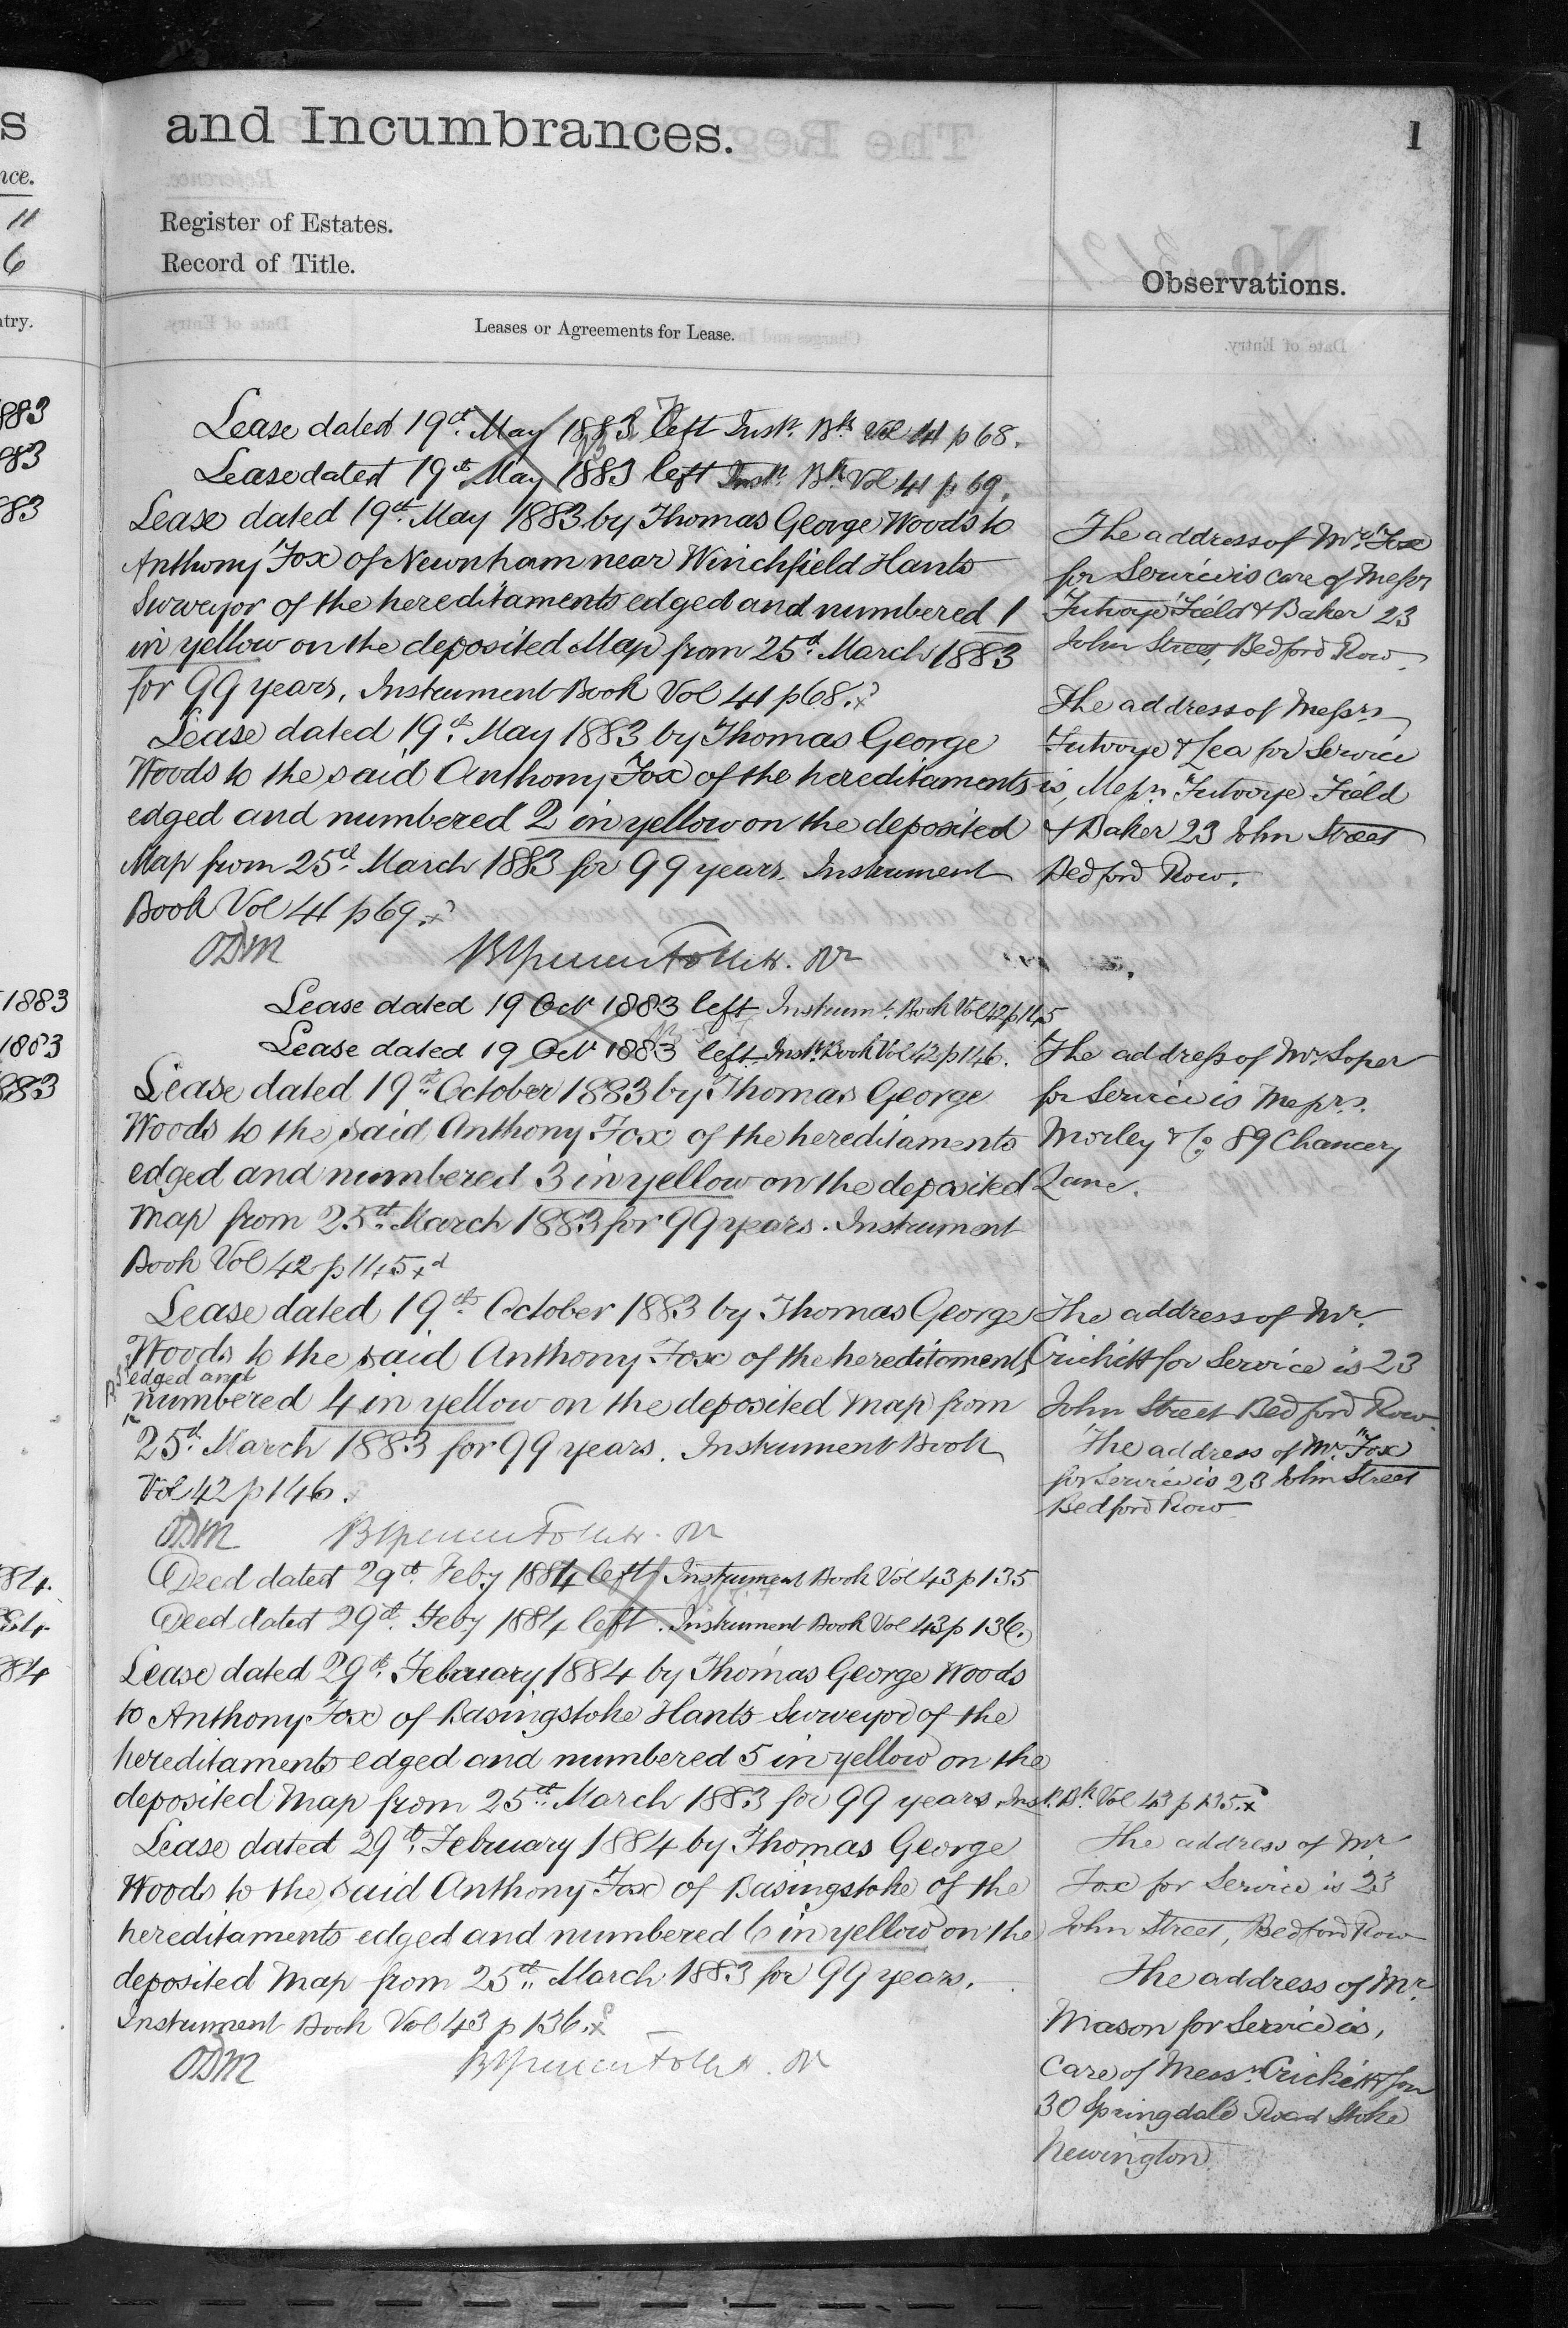 and Incumbrances.
1
Register of Estates.
Record of Title.
Observations.
Leases or Agreements for Lease.
Lease dated 19th May 1883 left Instr. Bk Vol 41 p 68.
Lease dated 19th May 1883 left Instr. Bk Vol 41 p 69.
Lease dated 19th May 1883 by Thomas George Woods to
Anthony Fox of Newnham near Winchfield Hants
Surveyor of the hereditaments edged and numbered 1
in yellow on the deposited Map from 25th March 1883
for 99 years. Instrument Book Vol 41 p 68.
Lease dated 19th May 1883 by Thomas George
Woods to the said Anthony Fox of the hereditaments
edged and numbered 2 in yellow on the deposited
Map from 25th March 1883 for 99 years. Instrument
Book Vol 41 p 69.
ODM
Lease dated 19 Oct 1883 left Instrumt. Book Vol 42 p 145
Lease dated 19 Oct 1883 left Instr. Book Vol 42 p 146.
Lease dated 19th October 1883 by Thomas George
Woods to the said Anthony Fox of the hereditaments
edged and numbered 3 in yellow on the deposited
map from 25th March 1883 for 99 years. Instrument
Book Vol 42 p 145
Lease dated 19th October 1883 by Thomas George
Woods to the said Anthony Fox of the hereditaments
edged and
numbered 4 in yellow on the deposited map from
25th March 1883 for 99 years. Instrument Book
Vol 42 p 146.
ODM
Deed dated 29th Feby 1884 left Instrument Book Vol 43 p 135
Deed dated 29th Feby 1884 left. Instrument Book Vol 43 p 136.
Lease dated 29th February 1884 by Thomas George Woods
to Anthony Fox of Basingstoke Hants Surveyor of the
hereditaments edged and numbered 5 in yellow on the
deposited map from 25th March 1883 for 99 years. Inst. Bk. Vol 43 p 135.
Lease dated 29th February 1884 by Thomas George
Woods to the said Anthony Fox of Basingstoke of the
hereditaments edged and numbered 6 in yellow on the
deposited map from 25th March 1883 for 99 years.
Instrument Book Vol 43 p 136.
ODM
The address of Mr. Fox
for Service is care of Messrs
Futvoye Field & Baker 23
John Street, Bedford Row.
The address of Messrs
Futvoye & Lea for Service
is, Messrs Futvoye Field
& Baker 23 John Street
Bedford Row.
The address of Mr Soper
for Service is Messrs.
Morley & Co 89 Chancery
Lane.
The address of Mr.
Crickitt for Service is 23
John Street Bedford Row
The address of Mr. Fox
for Service is 23 John Street
Bedford Row
The address of Mr
Fox for Service is 23
John Street, Bedford Row
The address of Mr.
Mason for Service is,
Care of Messrs Crickitt & Son
30 Springdale Road Stoke
Newington.
s
nce.
11
6
ntry.
883
883
883
1883
1883
883
884.
884
884